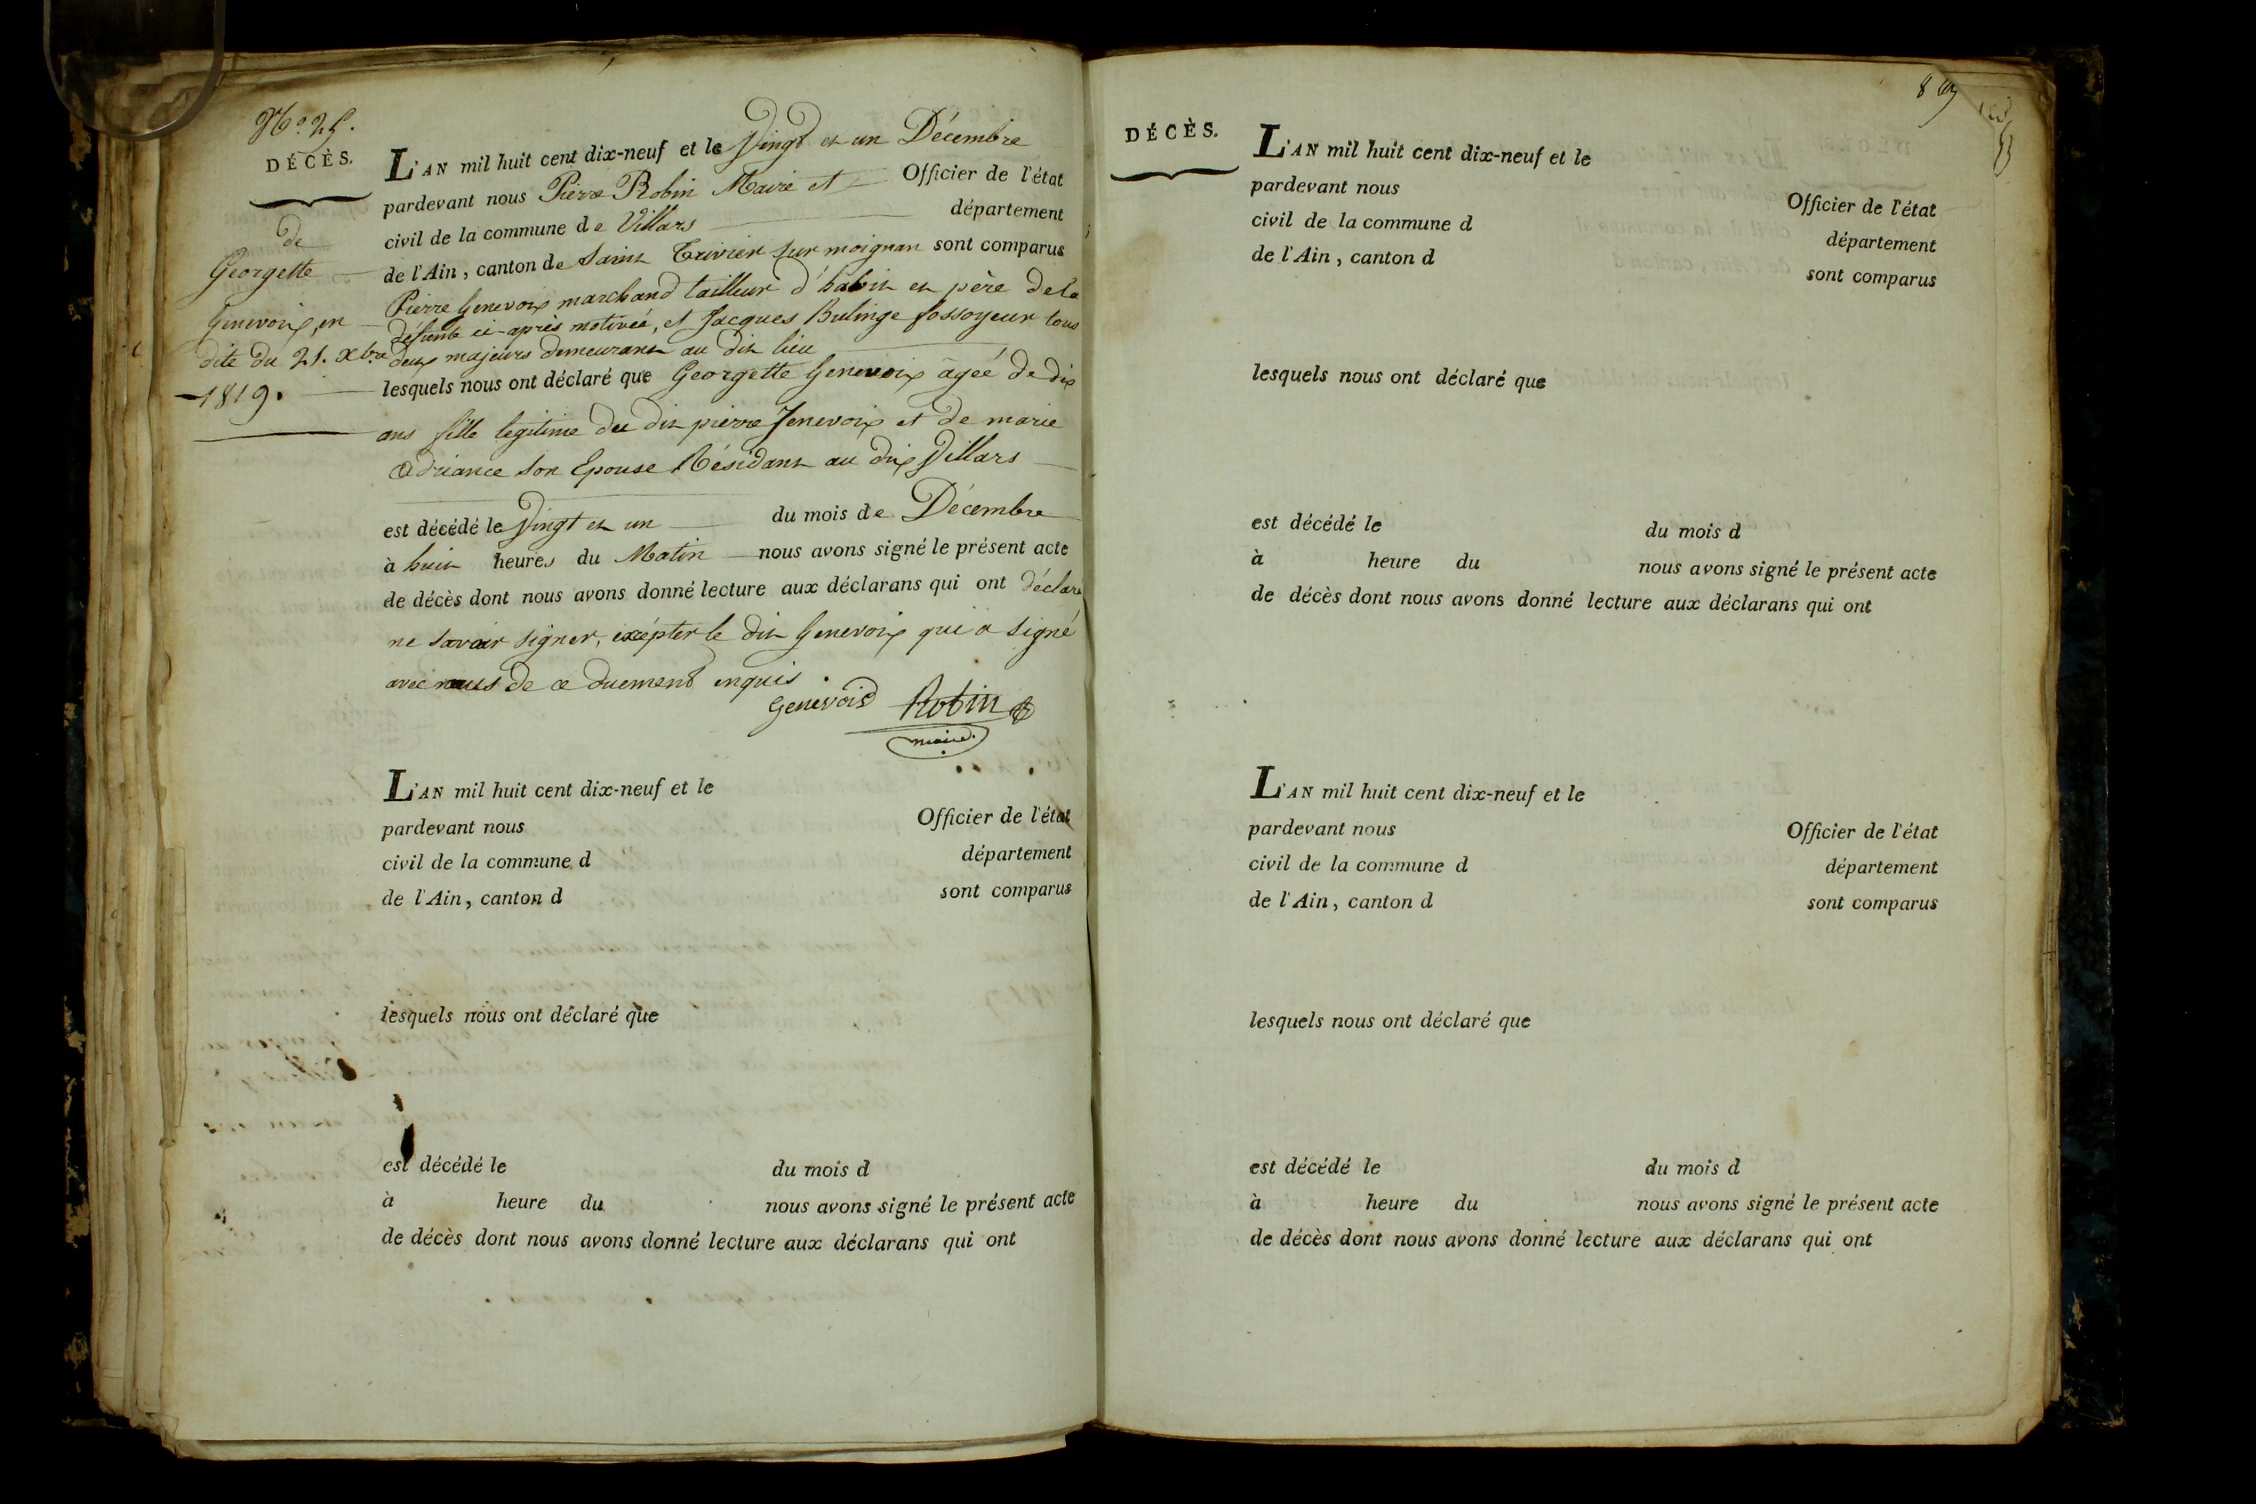 N.º 25.
DÉCÈS.
de
Georgette
Genevoix, en
dite du 21. Xbre
1819.
L'AN mil huit cent dix-neuf et le Vingt et un Décembre
pardevant nous Pierre Robin Maire et Officier de l'état
civil de la commune de Villars département
de l'Ain, canton de Saint Trivier sur moignan sont comparus
Pierre Genevoix marchand tailleur d'habit et père de la
défunte ci-après motivée, et Jacques Bulinge fossoyeur tous
deux majeurs demeurant au dit lieu
lesquels nous ont déclaré que Georgette Genevoix âgée de dix
ans fille legitime du dit pierre Jenevoix et de marie
Adriance son Epouse Résidant au dix Villars
est décédé le Vingt et un du mois de Décembre
à huit heures du Matin nous avons signé le présent acte
de décès dont nous avons donné lecture aux déclarans qui ont déclaré
ne savoir signer, excépter le dit Genevoix qui a signé
avec nous de ce duement enquis
Genevois Robin
maire.
L'AN mil huit cent dix-neuf et le
pardevant nous Officier de l'état
civil de la commune d département
de l'Ain, canton d sont comparus
lesquels nous ont déclaré que
est décédé le du mois d
à heure du nous avons signé le présent acte
de décès dont nous avons donné lecture aux déclarans qui ont
DÉCÈS.
L'AN mil huit cent dix-neuf et le
pardevant nous Officier de l'état
civil de la commune d département
de l'Ain, canton d sont comparus
lesquels nous ont déclaré que
est décédé le du mois d
à heure du nous avons signé le présent acte
de décès dont nous avons donné lecture aux déclarans qui ont
L'AN mil huit cent dix-neuf et le
pardevant nous Officier de l'état
civil de la commune d département
de l'Ain, canton d sont comparus
lesquels nous ont déclaré que
est décédé le du mois d
à heure du nous avons signé le présent acte
de décès dont nous avons donné lecture aux déclarans qui ont